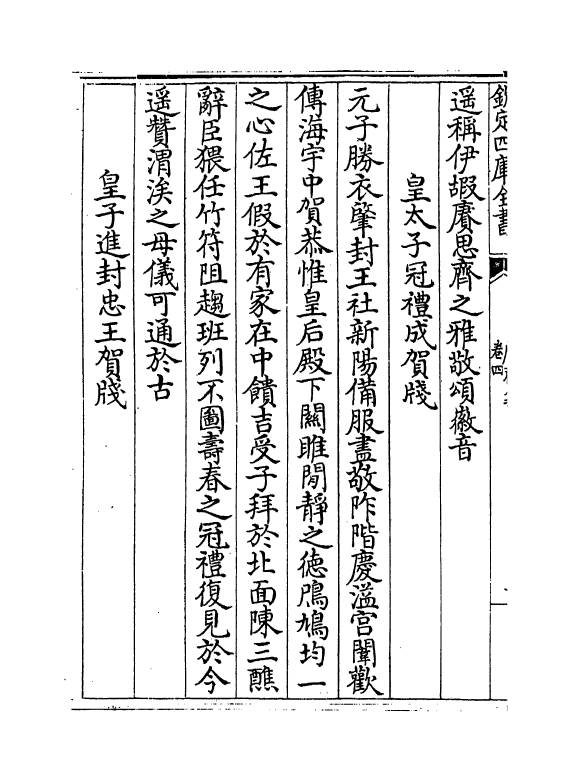 欽定四庫全書
卷四
遥稱伊嘏賡思齊之雅敬頌徽音
皇太子冠禮成賀牋
元子勝衣肇封王社新陽備服盡敬阼階慶溢宮闈歡
傳海宇中賀恭惟皇后殿下關雎閒靜之德鳲鳩均一
之心佐王假於有家在中饋吉受子拜於北面陳三醮
辭臣猥任竹符阻趨班列不圖壽春之冠禮復見於今
遥贊渭涘之母儀可通於古
皇子進封忠王賀牋